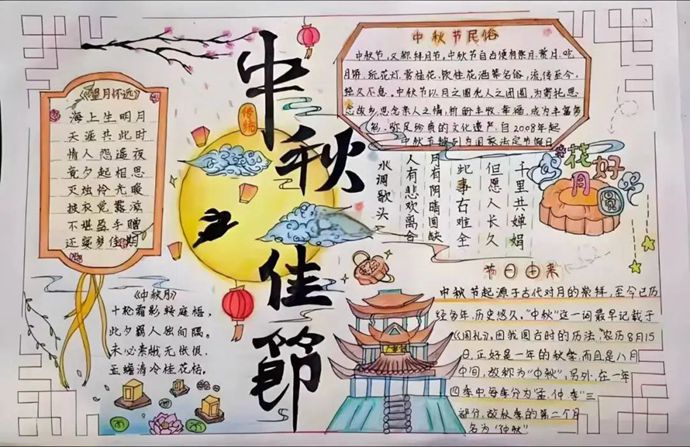 中秋佳節
传统
《望月怀远》
海上生明月
天涯共此时
情人怨遥夜
竟夕起相思
灭烛怜光暖
披衣觉露滋
不堪盈手赠
还寝梦佳期
《中秋月》
十轮霜影转庭梧,
此夕羁人独向隅。
未必素娥无怅恨,
玉蟾清冷桂花孤。
中秋节民俗
中秋节,又称拜月节,中秋节自古便有祭月、赏月、吃
月饼、玩花灯、赏桂花、饮桂花酒等民俗,流传至今,
经久不息,中秋节以月之圆兆人之团圆,为寄托思
念故乡思念亲人之情,祈盼丰收、幸福,成为丰富多
彩、弥足珍贵的文化遗产,自2008年起
中秋节被列为国家法定节假日
花好月圆
水调歌头
人有悲欢离合
月有阴晴圆缺
此事古难全
但愿人长久
千里共婵娟
节日由来
中秋节起源于古代对月的崇拜,至今已历
经多年,历史悠久,"中秋"这一词最早记载于
《周礼》,因我国古时的历法,农历8月15
日,正好是一年的秋季,而且是八月
中间,故称为"中秋",另外,在一年
四季中,每季分为"孟、仲、季"三
部分,故秋季的第二个月
名为"仲秋"